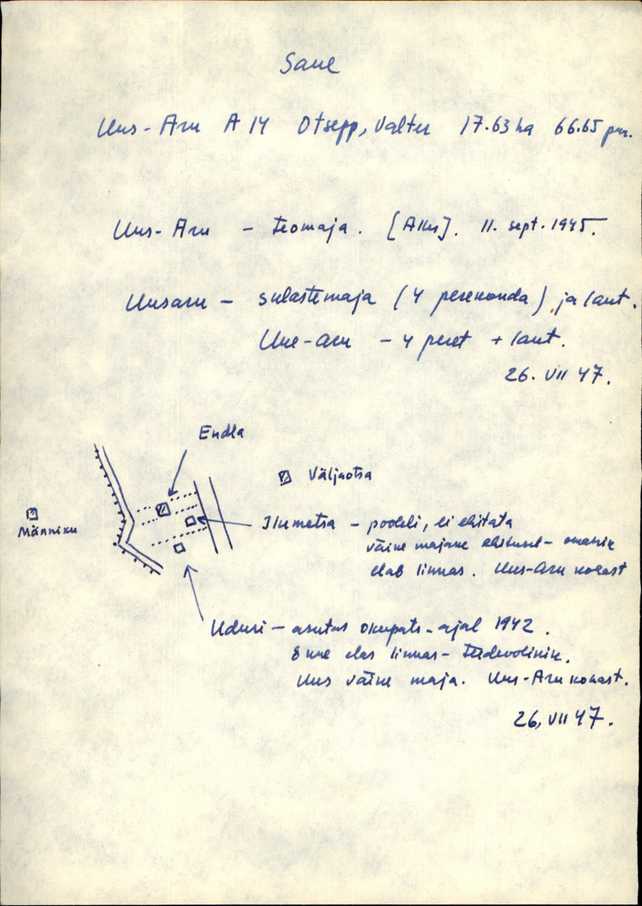 Saue
Uus-Aru A 14 Otsepp, Valter 17.63 ha 66.65
Uus-Aru – teomaja. 11. sept. 1945.
Uusaru – sulastemaja (4 perekonda), ja laut.
Uue-aru – 4 peret + laut.
26. VII 47.
Endla
Väljaotsa
Männiku
Ilumetsa – pooleli, ei ehitata
väike majake ehitusel – omanik
elab linnas. Uus-Aru kohast
Uduri – asutas okupats-ajal 1942.
Enne elas linnas –
Uus väike maja. Uus-Aru kohast.
26. VII 47.